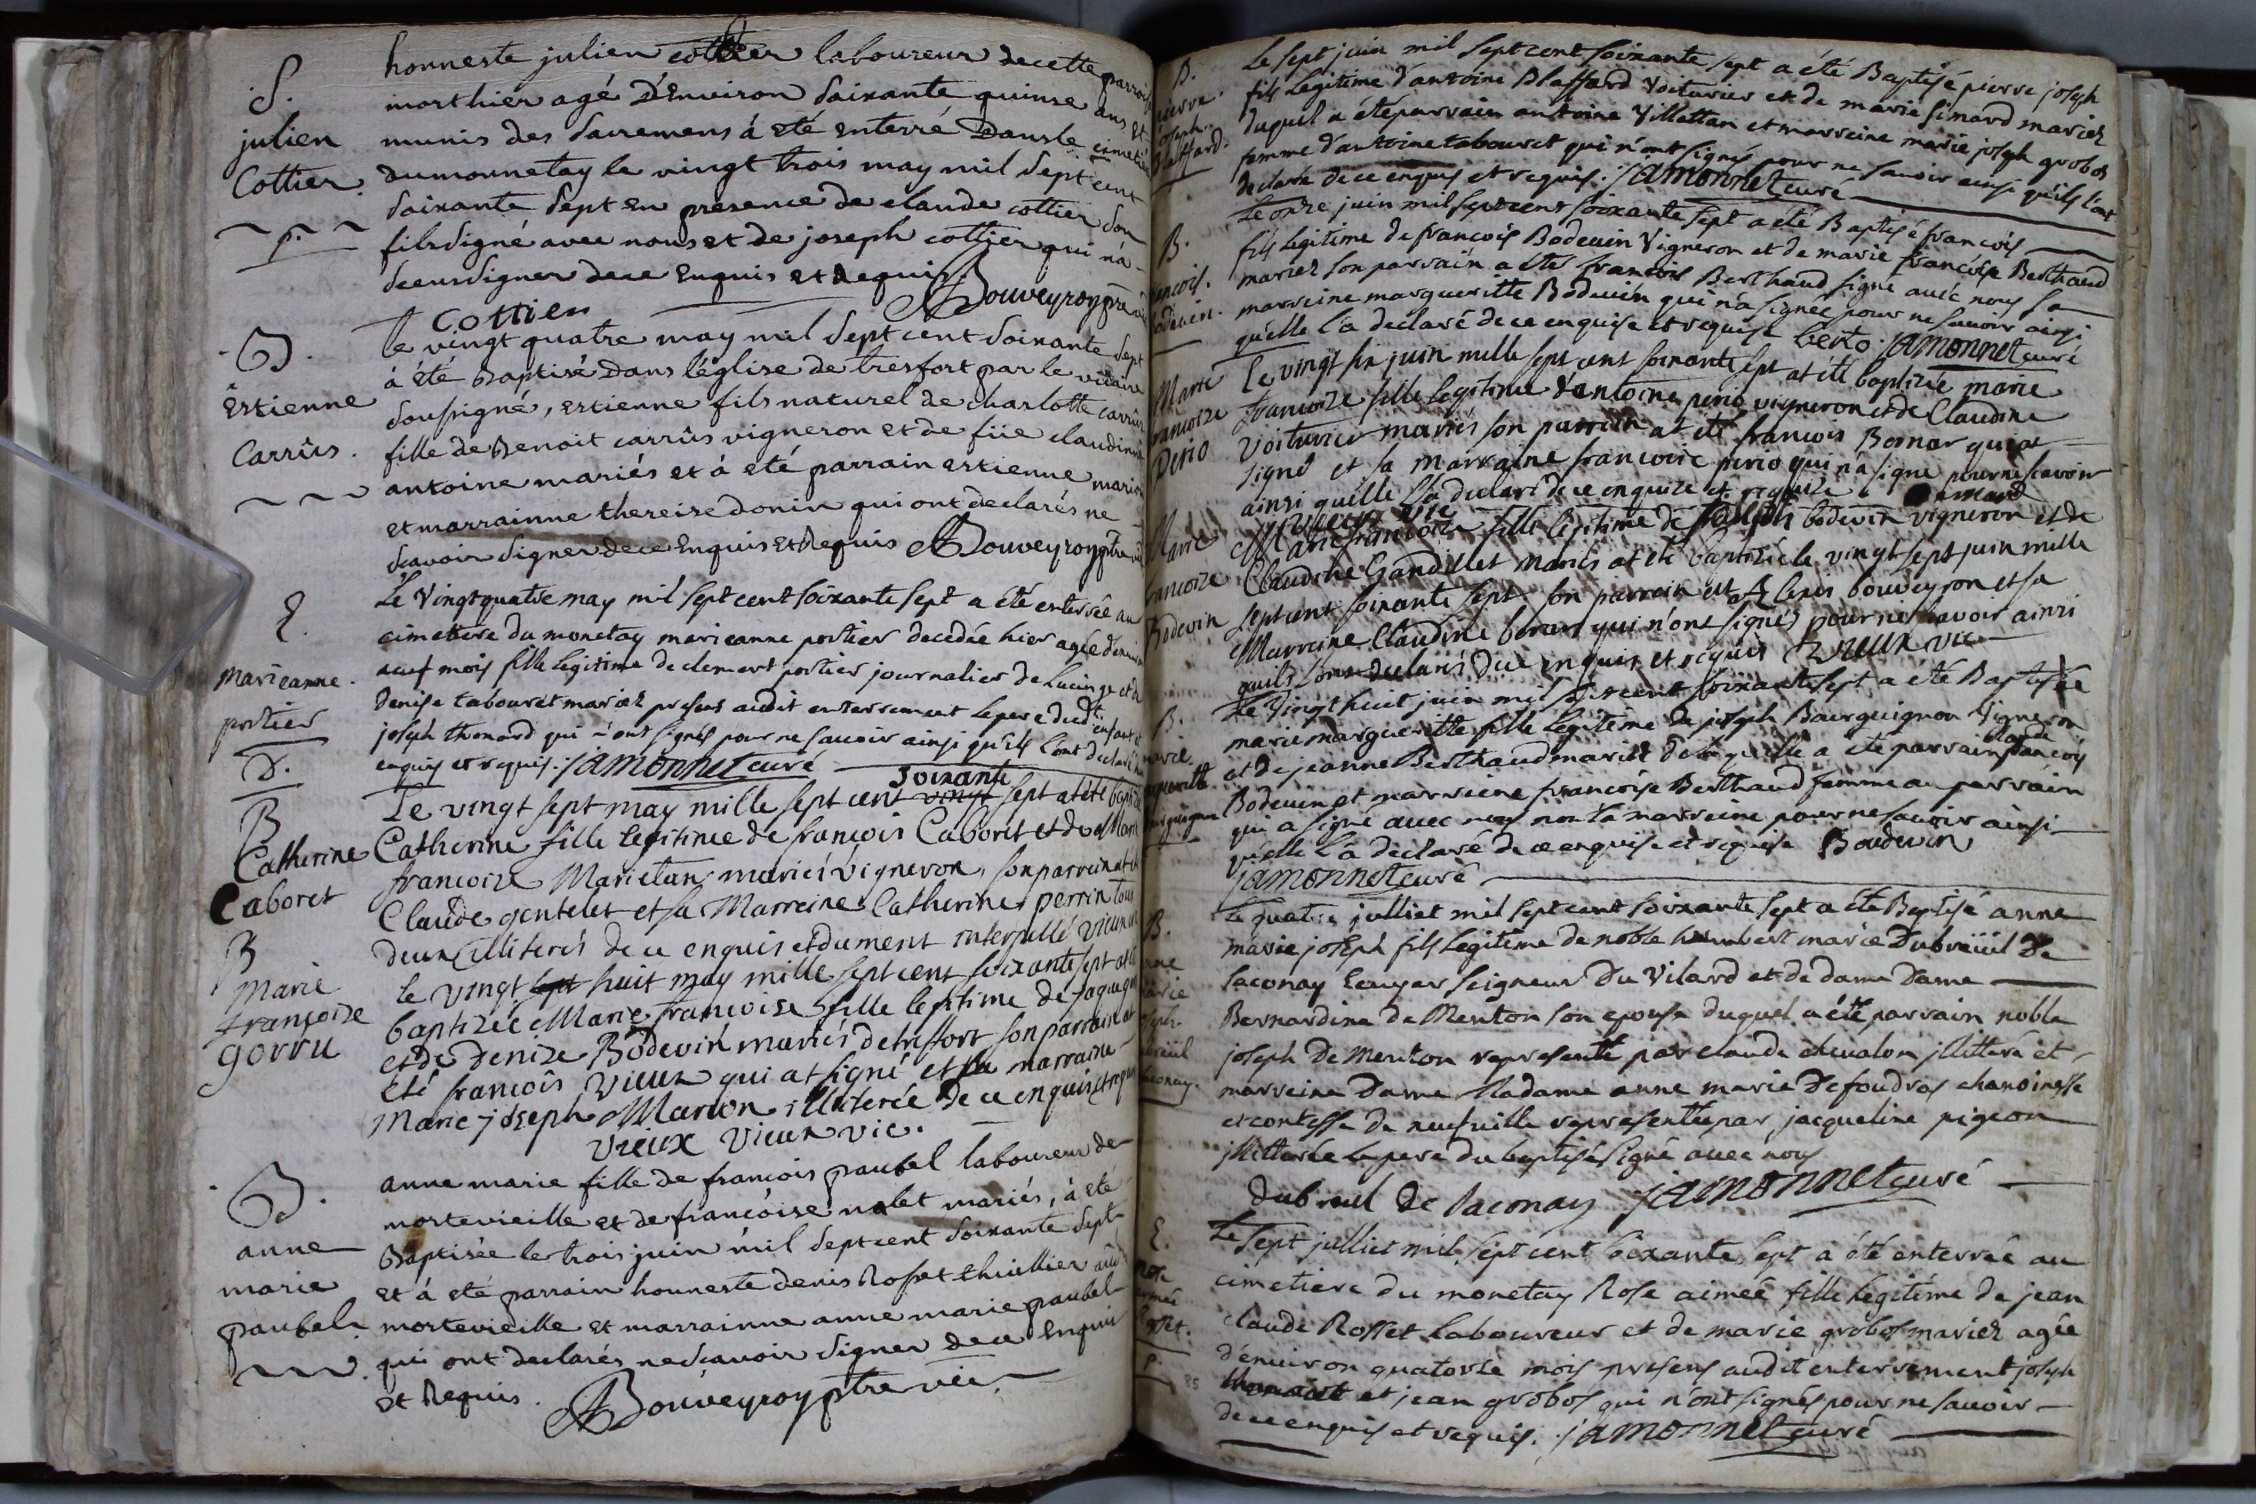 S.
julien
Cottier.
p.
honneste julien cottier laboureur de cette parroisse
mort hier agé D'Environ Soixante quinse ans Et
munis des Sacremens á Eté Enterré Dans le cimetiere
du monnetay le vingt trois may mil Sept cent
Soixante Sept En presence de claude cottier Son
fils Signé avec nous et de joseph cottier qui n'á
Sceu Signer de ce Enquis Et Requis. ABouveyroy ptre
Cottier
B.
Estienne
Carrûs.
le vingt quatre may mil Sept cent Soixante Sept
á été Baptisé Dans l'église de tresfort par le vicaire
Soussigné, Estienne fils naturel de charlotte carrûs
fille de Benoit carrûs vigneron Et de füe claudine
antoine mariés Et á Eté parrain Estienne marion
et marrainne thereise donin qui ont declarés ne
Scavoir Signer de ce Enquis Et Requis ABouveyroy ptre
E.
marieanne.
portier
D.
Le Vingt quatre may mil sept cent soixante sept a été enterrée au
cimetiere du monetay marieanne portier decedée hier agée d'environ
neuf mois fille legitime de clement portier journalier de Lucinge et de
denise tabouret mariez presens audit enterrement le pere dudt enfant et
joseph thonard qui n'ont signés pour ne savoir ainsi qu'ils l'ont declaré
enquis et requis. jamonnet curé
B
Catherine
Caboret
Le vingt sept may mille sept cent vingt soixante sept at été baptizé
Catherine fille legitime de francois Caboret et de Marie
francoize Marietan mariés vigneron, son parrein at été
Claude gentelet et sa Marreine Catherine perrin tous
deux illiterés de ce enquis et dument interpellé vieux
B
Marie
françoize
gorru
le vingt sept huit may mille sept cent soixante sept at été
baptizée Marie francoise fille legitime de jaque
et de Denize Bodevin mariés de tresfort son parrain at
été francois Vieux qui at signé et sa marraine
Marie joseph Marion illiterée de ce enquis et requis
Vieux Vieux vic.
B.
anne
marie
paubel.
anne marie fille de françois paubel laboureur de
mortevieille et de françoise nalet mariés, á Eté
Baptisée le trois juin mil Sept cent Soixante Sept
et á eté parrain honneste denis Rosset thuillier au
mortevieille et marrainne anne marie paubel
qui ont declarés ne Scavoir Signer de ce Enquis
et Requis. ABouveyroy ptre vic.
B.
pierre
joseph
Blaffard.
Le sept juin mil sept cent soixante sept a été Baptisé pierre joseph
fils legitime d'antoine Blaffard Voiturier et de marie Simard mariez
duquel a été parrain antoine Villettan et marreine marie joseph grobos
femme d'antoine tabouret qui n'ont signés pour ne savoir ainsi qu'ils l'ont
declaré de ce enquis et requis. jamonnet curé
B.
francois.
Bodevin.
Le onze juin mil sept cent soixante sept a été Baptisé francois
fils legitime de francois Bodevin Vigneron et de marie françoise Berthaud
mariez son parrain a été francois Berthaud signé avec nous sa
marreine marguerite Bodevin qui n'a signée pour ne savoir ainsi
qu'elle l'a declaré de ce enquise et requise berto. jamonnet curé
Marie
francoize
perio
Le vingt six juin mille sept cent soixante sept at été baptizée marie
francoize fille legitime d'antoine perio vigneron et de Claudine
Voiturier mariés son parrein at été francois Bornar qui at
signé et sa marraine francoise perio qui n'a signé pour ne scavoir
ainsi qu'elle l'a declaré de ce enquize et requize
Vieux vic
Marie
francoize
Bodevin
Marie francoize fille legitime de Joseph bodevin vigneron et de
Claudine Gandillet mariés at été baptizée le vingt sept juin mille
sept cent soixante sept son parrein at été Alexis bouveyron et sa
Marreine Claudine borars qui n'ont signés pour ne scavoir ainsi
qu'ils l'ont declarés de ce enquis et requis Vieux vic
B.
marie
marguerite
Bourguignon
Le Vingt huit juin mil sept cent soixante sept a été Baptisée
marie marguerite fille legitime de joseph Bourguignon Vigneron
et de jeanne Berthaud mariez de laquelle a été parrain claude francois
Bodevin et marreine françoise Berthaud femme au parrain
qui a signé avec nous non la marreine pour ne savoir ainsi
qu'elle l'a declaré de ce enquise et requise Boudevin
jamonnet curé
B.
anne
marie
joseph
dubreüil
laconay.
Le quatre julliet mil sept cent soixante sept a été Baptisé anne
marie joseph fils legitime de noble humbert marie Dubreüil De
laconay Ecuyer Seigneur Du Vilard et de dame Dame
Bernardine De Menton son epouse duquel a été parrain noble
joseph De Menton representé par claude chevalon jlitteré et
marreine Dame Madame anne marie De foudras chanoinesse
et contesse de neufville representée par jacqueline pigeon
jllitterée le pere du baptisé signé avec nous
dubreul de laconay jamonnet curé
E.
Rose
aimée
Rosset.
p.
Le sept julliet mil sept cent soixante sept a été enterrée au
cimetiere du monetay Rose aimée fille legitime de jean
claude Rosset Laboureur et de marie grobos mariez agée
d'environ quatorze mois presens audit enterrement joseph
thonard et jean grobos qui n'ont signés pour ne savoir
de ce enquis et requis. jamonnet curé
85